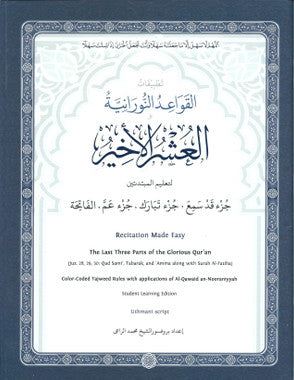 اللهم لا سهل إلا ما جعلته سهلا وأنت تجعل الحزن إذا شئت سهلا
تطبيقات
القواعد النورانية
العشر الأخير
لتعليم المبتدئين
جزء قد سمع . جزء تبارك . جزء عم . الفاتحة
Recitation Made Easy
The Last Three Parts of the Glorious Qur'an
(Juz. 28, 29, 30: Qad Sami', Tabarak, and 'Amma along with Surah Al-Fatiha)
Color-Coded Tajweed Rules with applications of Al-Qawaid an-Nooraniyyah
Student Learning Edition
Uthmani script
إعداد بروفسور الشيخ محمد الراعي